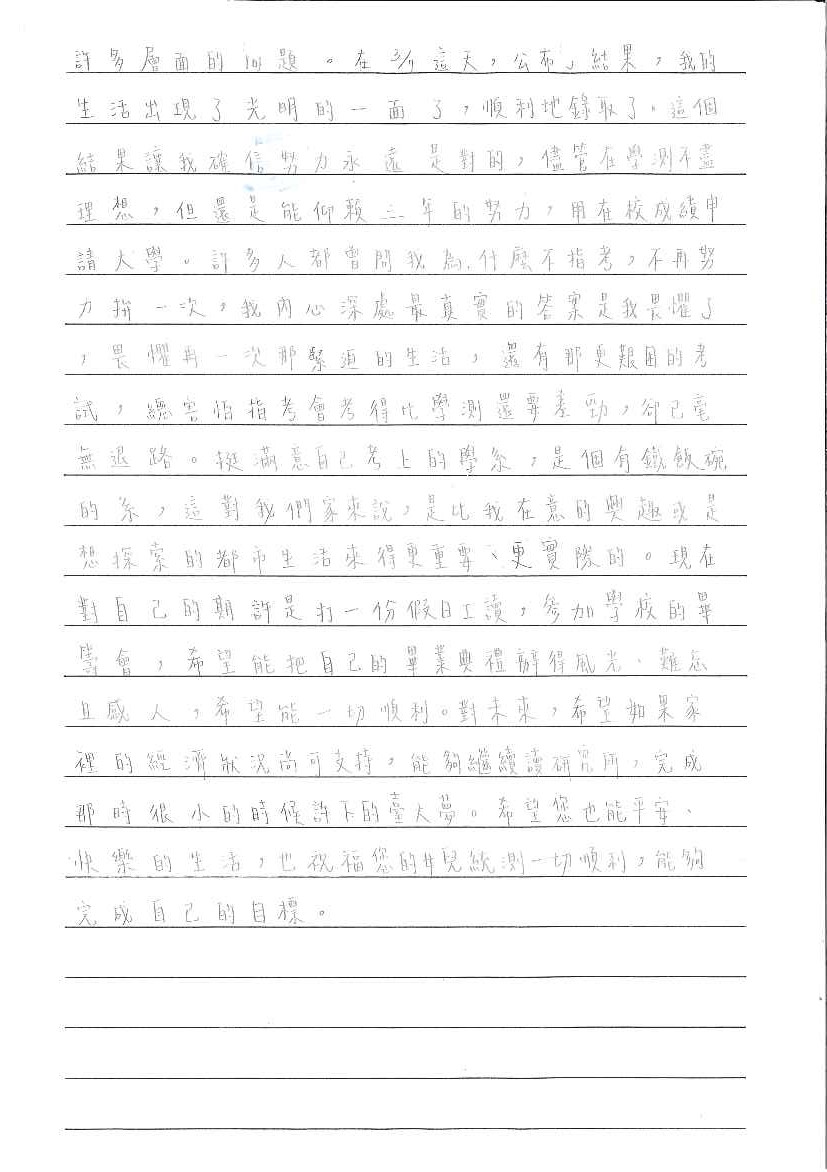 許多層面的問題。在3/11這天,公布了結果,我的
生活出現了光明的一面了,順利地錄取了。這個
結果讓我確信努力永遠是對的,儘管在學測不盡
理想,但還是能仰賴三年的努力,用在校成績申
請大學。許多人都曾問我為什麼不指考,不再努
力拚一次,我內心深處最真實的答案是我畏懼了
,畏懼再一次那緊迫的生活,還有那更艱困的考
試,總害怕指考會考得比學測還要差勁,卻已毫
無退路。挺滿意自己考上的學系,是個有鐵飯碗
的系,這對我們家來說,是比我在意的興趣或是
想探索的都市生活來得更重要、更實際的。現在
對自己的期許是打一份假日工讀,參加學校的畢
籌會,希望能把自己的畢業典禮辦得風光、難忘
且感人,希望能一切順利。對未來,希望如果家
裡的經濟狀況尚可支持,能夠繼續讀研究所,完成
那時很小的時候許下的臺大夢。希望您也能平安、
快樂的生活,也祝福您的女兒統測一切順利,能夠
完成自己的目標。